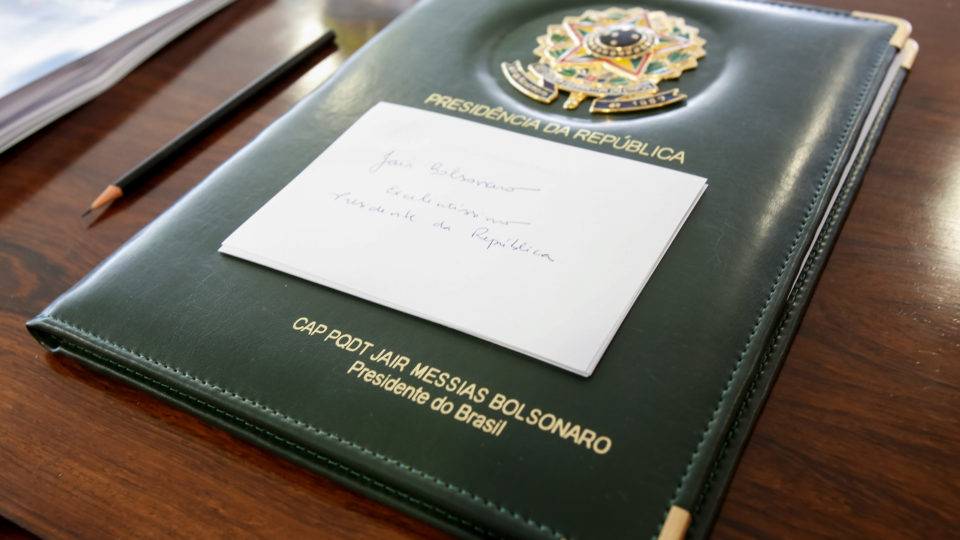 PRESIDÊNCIA DA REPÚBLICA
Jair Bolsonaro
Excelentíssimo
Presidente da República
CAP PQDT JAIR MESSIAS BOLSONARO
Presidente do Brasil